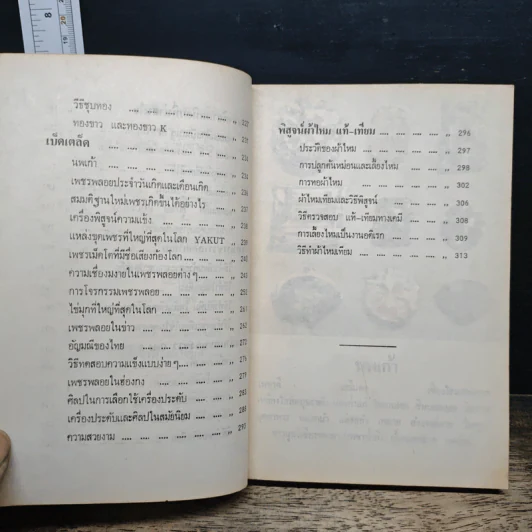 วิธีชุบทอง .... .... .... .... .... .... ,,
ทองขาว และทองขาว K .... .... .... .... ,, 237
เบ็ดเตล็ด .... .... .... .... .... .... ,,
นพเก้า .... .... .... .... .... .... ,,
เพชรพลอยประจำวันเกิดและเดือนเกิด .... .... ,,
สมมติฐานใหม่เพชรเกิดขึ้นได้อย่างไร .... .... ,,
เครื่องพิสูจน์ความแข็ง .... .... .... .... ,,
แหล่งขุดเพชรที่ใหญ่ที่สุดในโลก YAKUT .... ,,
เพชรเม็ดโตที่มีชื่อเสียงก้องโลก .... .... .... ,,
ความเชื่องมงายในเพชรพลอยต่าง ๆ .... .... ,,
การโจรกรรมเพชรพลอย .... .... .... .... ,,
ไข่มุกที่ใหญ่ที่สุดในโลก .... .... .... .... ,, 267
เพชรพลอยในข่าว .... .... .... .... .... ,,
อัญมณีของไทย .... .... .... .... .... ,, 272
วิธีทดสอบความแข็งแบบง่าย ๆ .... .... .... ,, 275
เพชรพลอยในฮ่องกง .... .... .... .... ,, 279
ศิลปในการเลือกใช้เครื่องประดับ .... .... .... ,, 283
เครื่องประดับและศิลปในสมัยนิยม .... .... .... ,, 288
ความสวยงาม .... .... .... .... .... .... ,, 293
พิสูจน์ผ้าไหม แท้-เทียม .... .... .... .... ,, 296
ประวัติของผ้าไหม .... .... .... .... ,, 297
การปลูกต้นหม่อนและเลี้ยงไหม .... .... ,, 298
การทอผ้าไหม .... .... .... .... ,, 302
ผ้าไหมเทียมและวิธีพิสูจน์ .... .... .... ,, 306
วิธีตรวจสอบ แท้-เทียมทางเคมี .... .... ,, 308
การเลี้ยงไหมเป็นงานอดิเรก .... .... .... ,, 309
วิธีทำผ้าไหมเทียม .... .... .... .... ,, 313